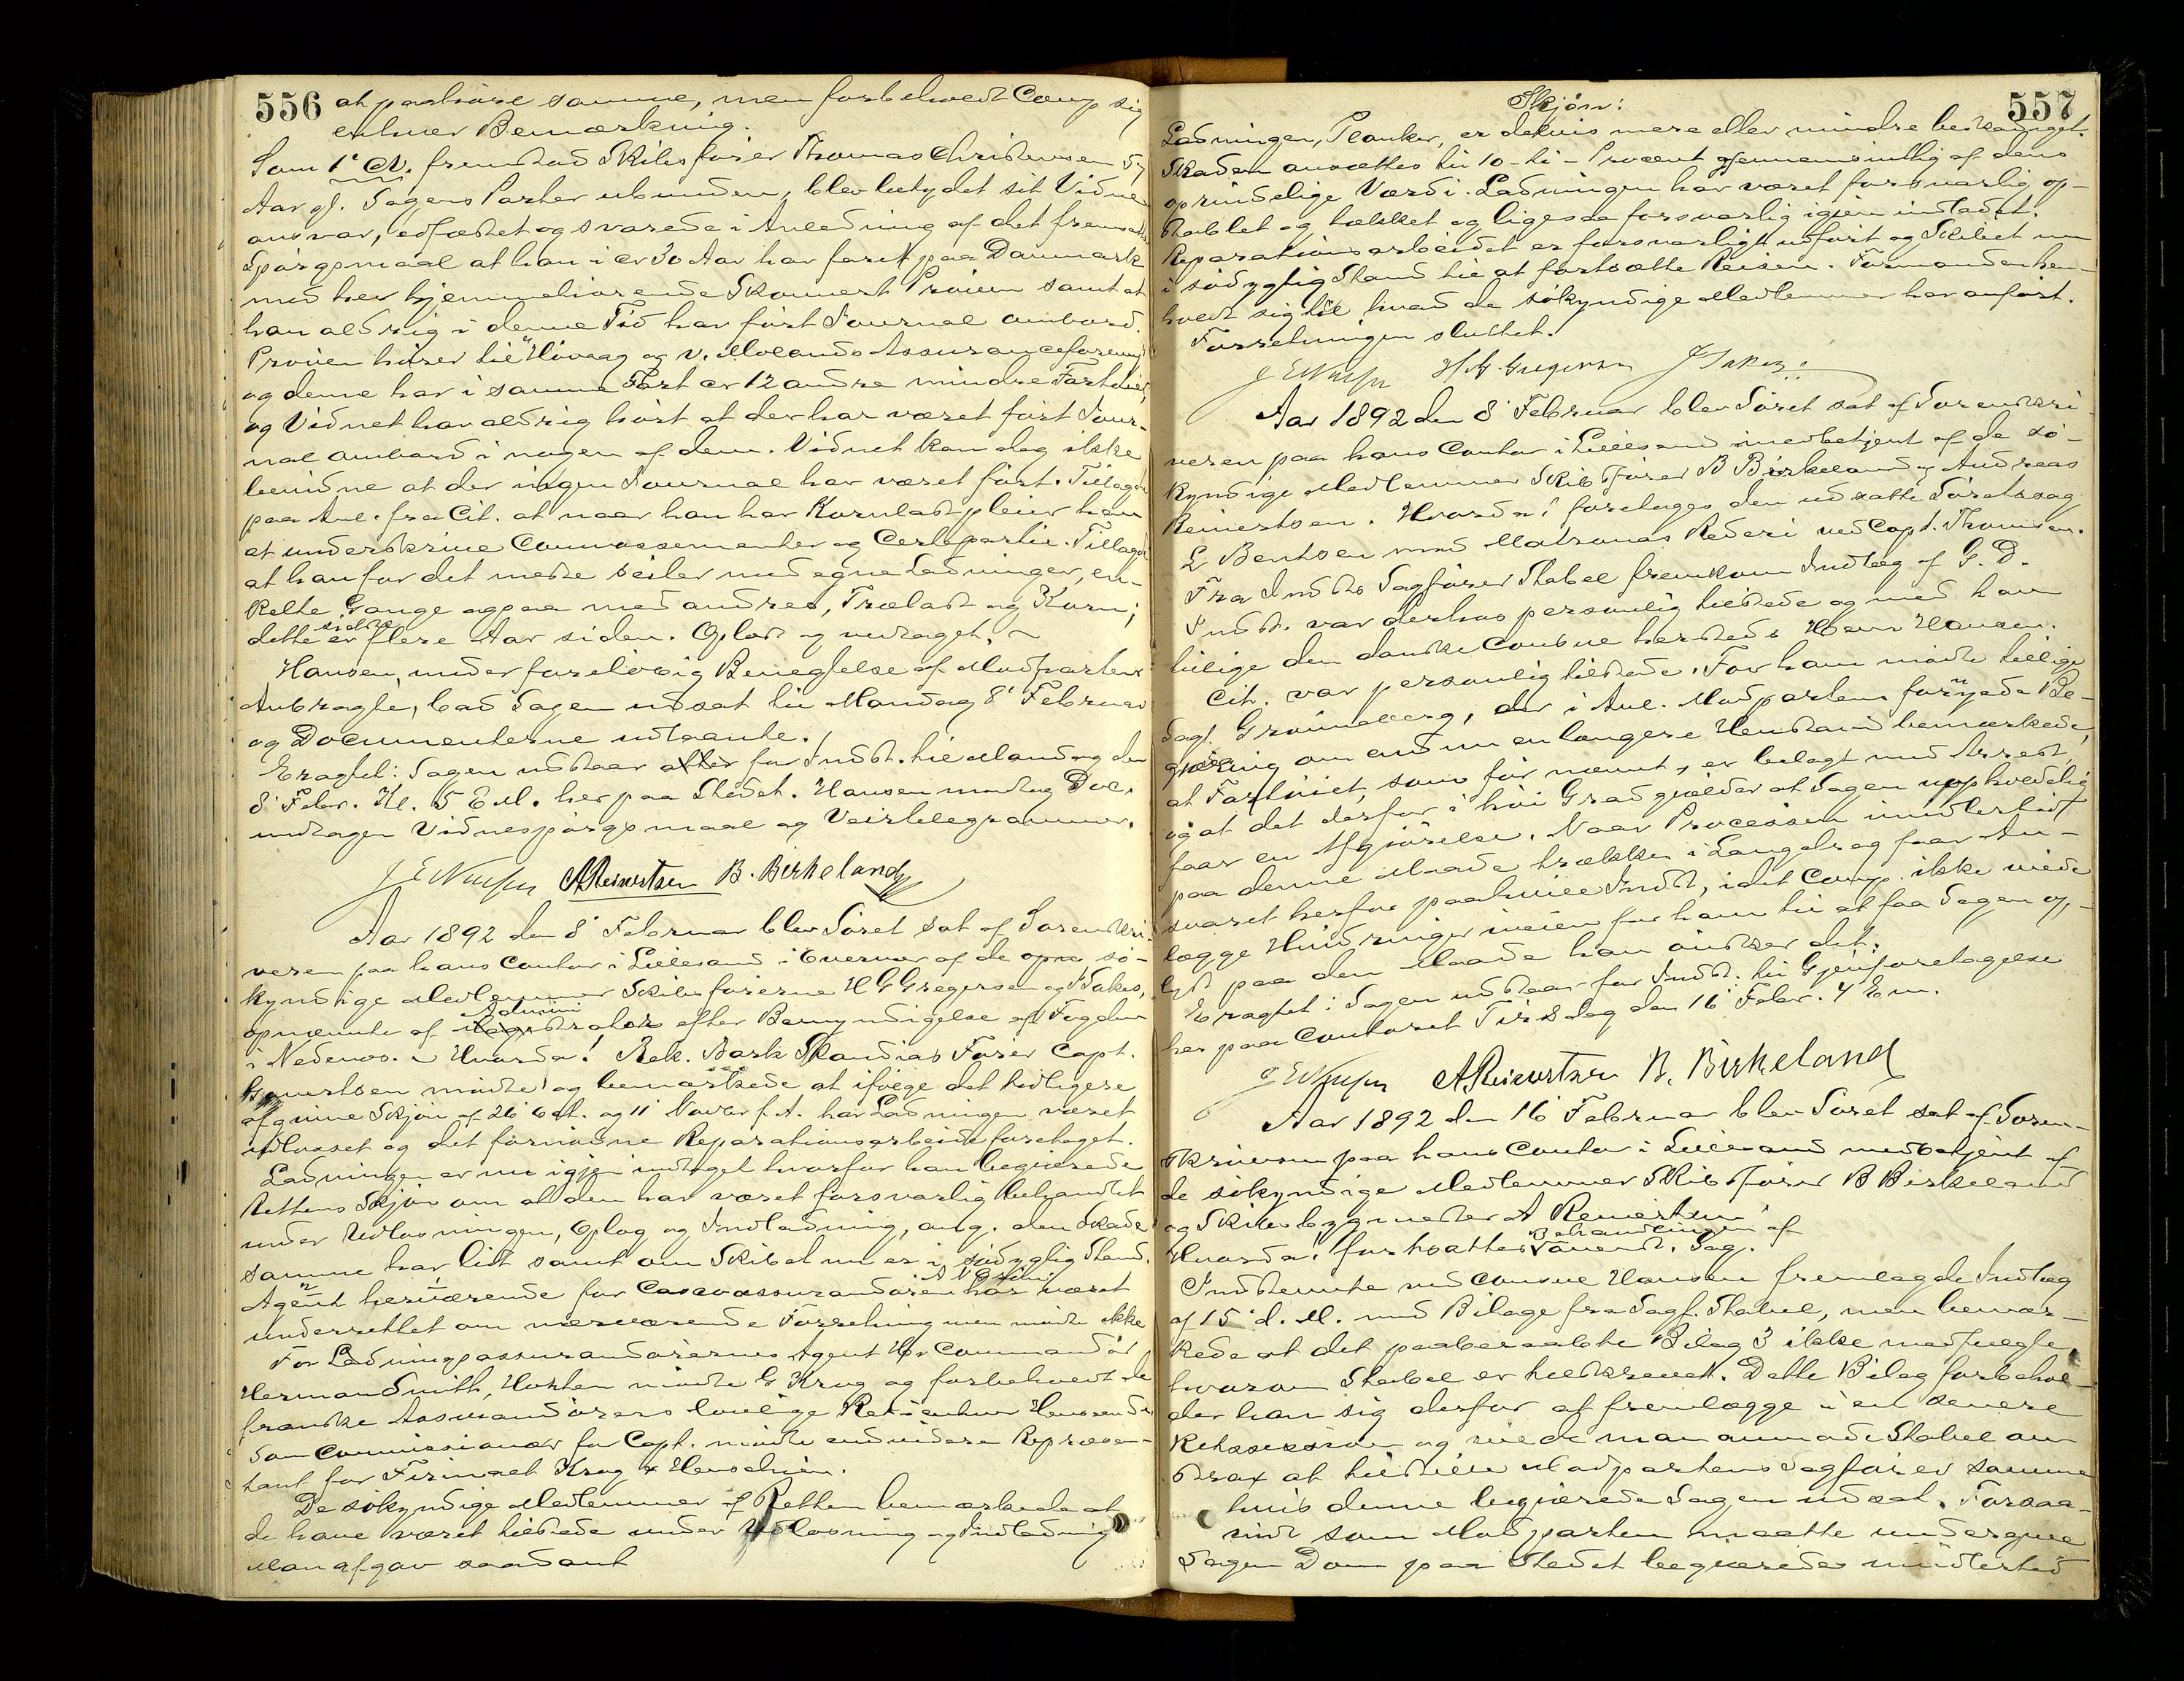 556
at paahøre samme, men forbeholdt Comp sig
enhver Bemærkning.
Som 1' V. fremstod Skibsfører Thomas Christensen 57
Aar gl. Sagens Parter ubunden, blev betydet sit Vidne
ansvar, edfæstet og svarede i Anledning af det fremsatte
Spørgsmaal at han i cr 30 Aar har faret paa Danmark
med her hjemmehørende Skonnert Prøven samt at
han aldrig i denne Tid har ført Journal ombord.
Prøven hører til Høvaag og v. Molands Assuranceforening
og denne har i samme Fart cr 12 andre mindre Fartøier,
og Vidnet har aldrig hørt at der har været ført Jour-
nal ombord i nogen af dem. Vidnet kan dog ikke
bevidne at der ingen Journal har været ført. Tillagde
paa Anl. fra Cit. at naar han har Kornlast pleier han
at underskrive Connossementer og Certeparti. Tillagde
at han for det meste seiler med egne Ladninger, en-
kelte Gange ogsaa med andres, Trælast og Korn;
dette sidste er flere Aar siden. Oplæst og vedtaget. ~
Hansen, under foreløbig Benegtelse af Modpartens
Anbragte, bad Sagen udsat til Mandag 8' Februar
og Documenterne udlaante.
Eragtet: Sagen udstaar atter for Indst. til Mandag den
8' Febr. Kl. 5 E M. her paa Stedet. Hansen modtog Doc.
undtagen Vidnespørgsmaal og Veirtelegrammer.
A Reinertsen B. Birkeland
Aar 1892 den 8' Februar blev Søret sat af Sorenskri-
veren paa hans Contor i Lillesand i Overvær af de opn. sø-
kyndige Medlemmer Skibsførerne H G Gregersen og J Jakes,
opnævnte af Admini
strator efter Bemyndigelse af Fogden
i Nedenes. ~ Hvorda! Rek. Bark Skandias Fører Capt.
mødte og bemærkede at ifølge det tidligere
afgivne Skjøn af 26' Oct. og 11' Novbr f. A. har Ladningen været
udlosset og det fornødne Reparationsarbeide foretaget.
Ladningen er nu igjen indtaget hvorfor han begjærede
Rettens Skjøn om at den har været forsvarlig behandlet
under Udlosningen, Oplag og Indladning, ang. den Skade
samme har lidt samt om Skibet nu er i sødygtig Stand.
Agent herværende for Cascoassurandøren har været
underrettet om nærværende Forretning men mødte ikke
For Ladningsassurandørernes Agent Hr Commandør
Herman Smith, Horten mødte G Krog og forbeholdt de
franske Assurandørers lovlige Ret i enhver Henseende.
Som Commissionær for Capt. mødte endvidere Repræsen-
tant for Firmaet Krog & Henschien.
De søkyndige Medlemmer af Retten bemærkede at
de have været tilstede under Udlosning og Indladning
Man afgav saadant
557
Skjøn:
Ladningen, Planker, er delvis mere eller mindre beskadiget.
Skaden ansættes til 10 - ti - Procent gjennemsnitlig af dens
oprindelige Værdi. Ladningen har været forsvarlig op-
stablet og tækket og ligesaa forsvarlig igjen indladet.
Reparationsarbeidet er forsvarligt udført og Skibet nu
i sødygtig Stand til at fortsætte Reisen. Formanden hen-
holdt sig til hvad de søkyndige Medlemmer har anført.
Forretningen sluttet.
H.G. Gregersen J Jakes
Aar 1892 den 8' Februar blev Søret sat af Sorenskri-
veren paa hans Contor i Lillesand medbetjent af de sø-
kyndige Medlemmer Skibsfører B Birkeland og Andreas
Reinertsen. Hvorda! foretoges den udsatte Søretssag
L Bentsen mod Matronas Rederi ved Capt. Thomsen.
Fra Indsts Sagfører Stabel fremkom Indlæg af G. D.
Indst. var derhos personlig tilstede og med ham
tillige den danske Consul hersteds Herr Hansen.
Cit. var personlig tilstede. For ham mødte tillige
Sagf. Grønneberg, der i Anl. Modpartens fornyede Be-
gjæring om endnu en længere Henstand bemærkede,
at Fartøiet, som før nævnt, er belagt med Arrest,
og at det derfor i høi Grad gjælder at Sagen uopholdelig
faar en Afgjørelse. Naar Processen imidlertid
paa denne Maade trækkes i Langdrag faar An-
svaret herfor paahvile Indst, idet Comp. ikke vilde
lægge Hindringer iveien for ham til at faa Sagen op-
lyst paa den Maade han ønsker det.
Eragtet: Sagen udstaar for Indst. til Gjenforetagelse
her paa Contoret Tirsdag den 16' Febr. 4 Em.
A Reinertsen B. Birkeland
Aar 1892 den 16' Februar blev Søret sat af Soren-
skriveren paa hans Contor i Lillesand medbetjent af
de søkyndige Medlemmer Skibsfører B Birkeland
og Skibsbygmester A Reinertsen
Hvorda! fortsattes Behandlingen af Søretssag.
Indstevnte ved Consul Hansen fremlagde Indlæg
af 15' d. M. med Bilage fra Sagf. Stabel, men bemær-
kede at det paaberaabte Bilag 3 ikke medfulgte,
hvorom Stabel er tilskrevet. Dette Bilag forbehol-
der han sig derfor at fremlægge i en senere
Retssession og vilde man anmode Stabel om
strax at tilstille Modpartens Sagfører samme
hvis denne begjærede Sagen udsat. Forsaa-
vidt som Modparten maatte undergive
Sagen Dom paa Stedet begjæredes imidlertid